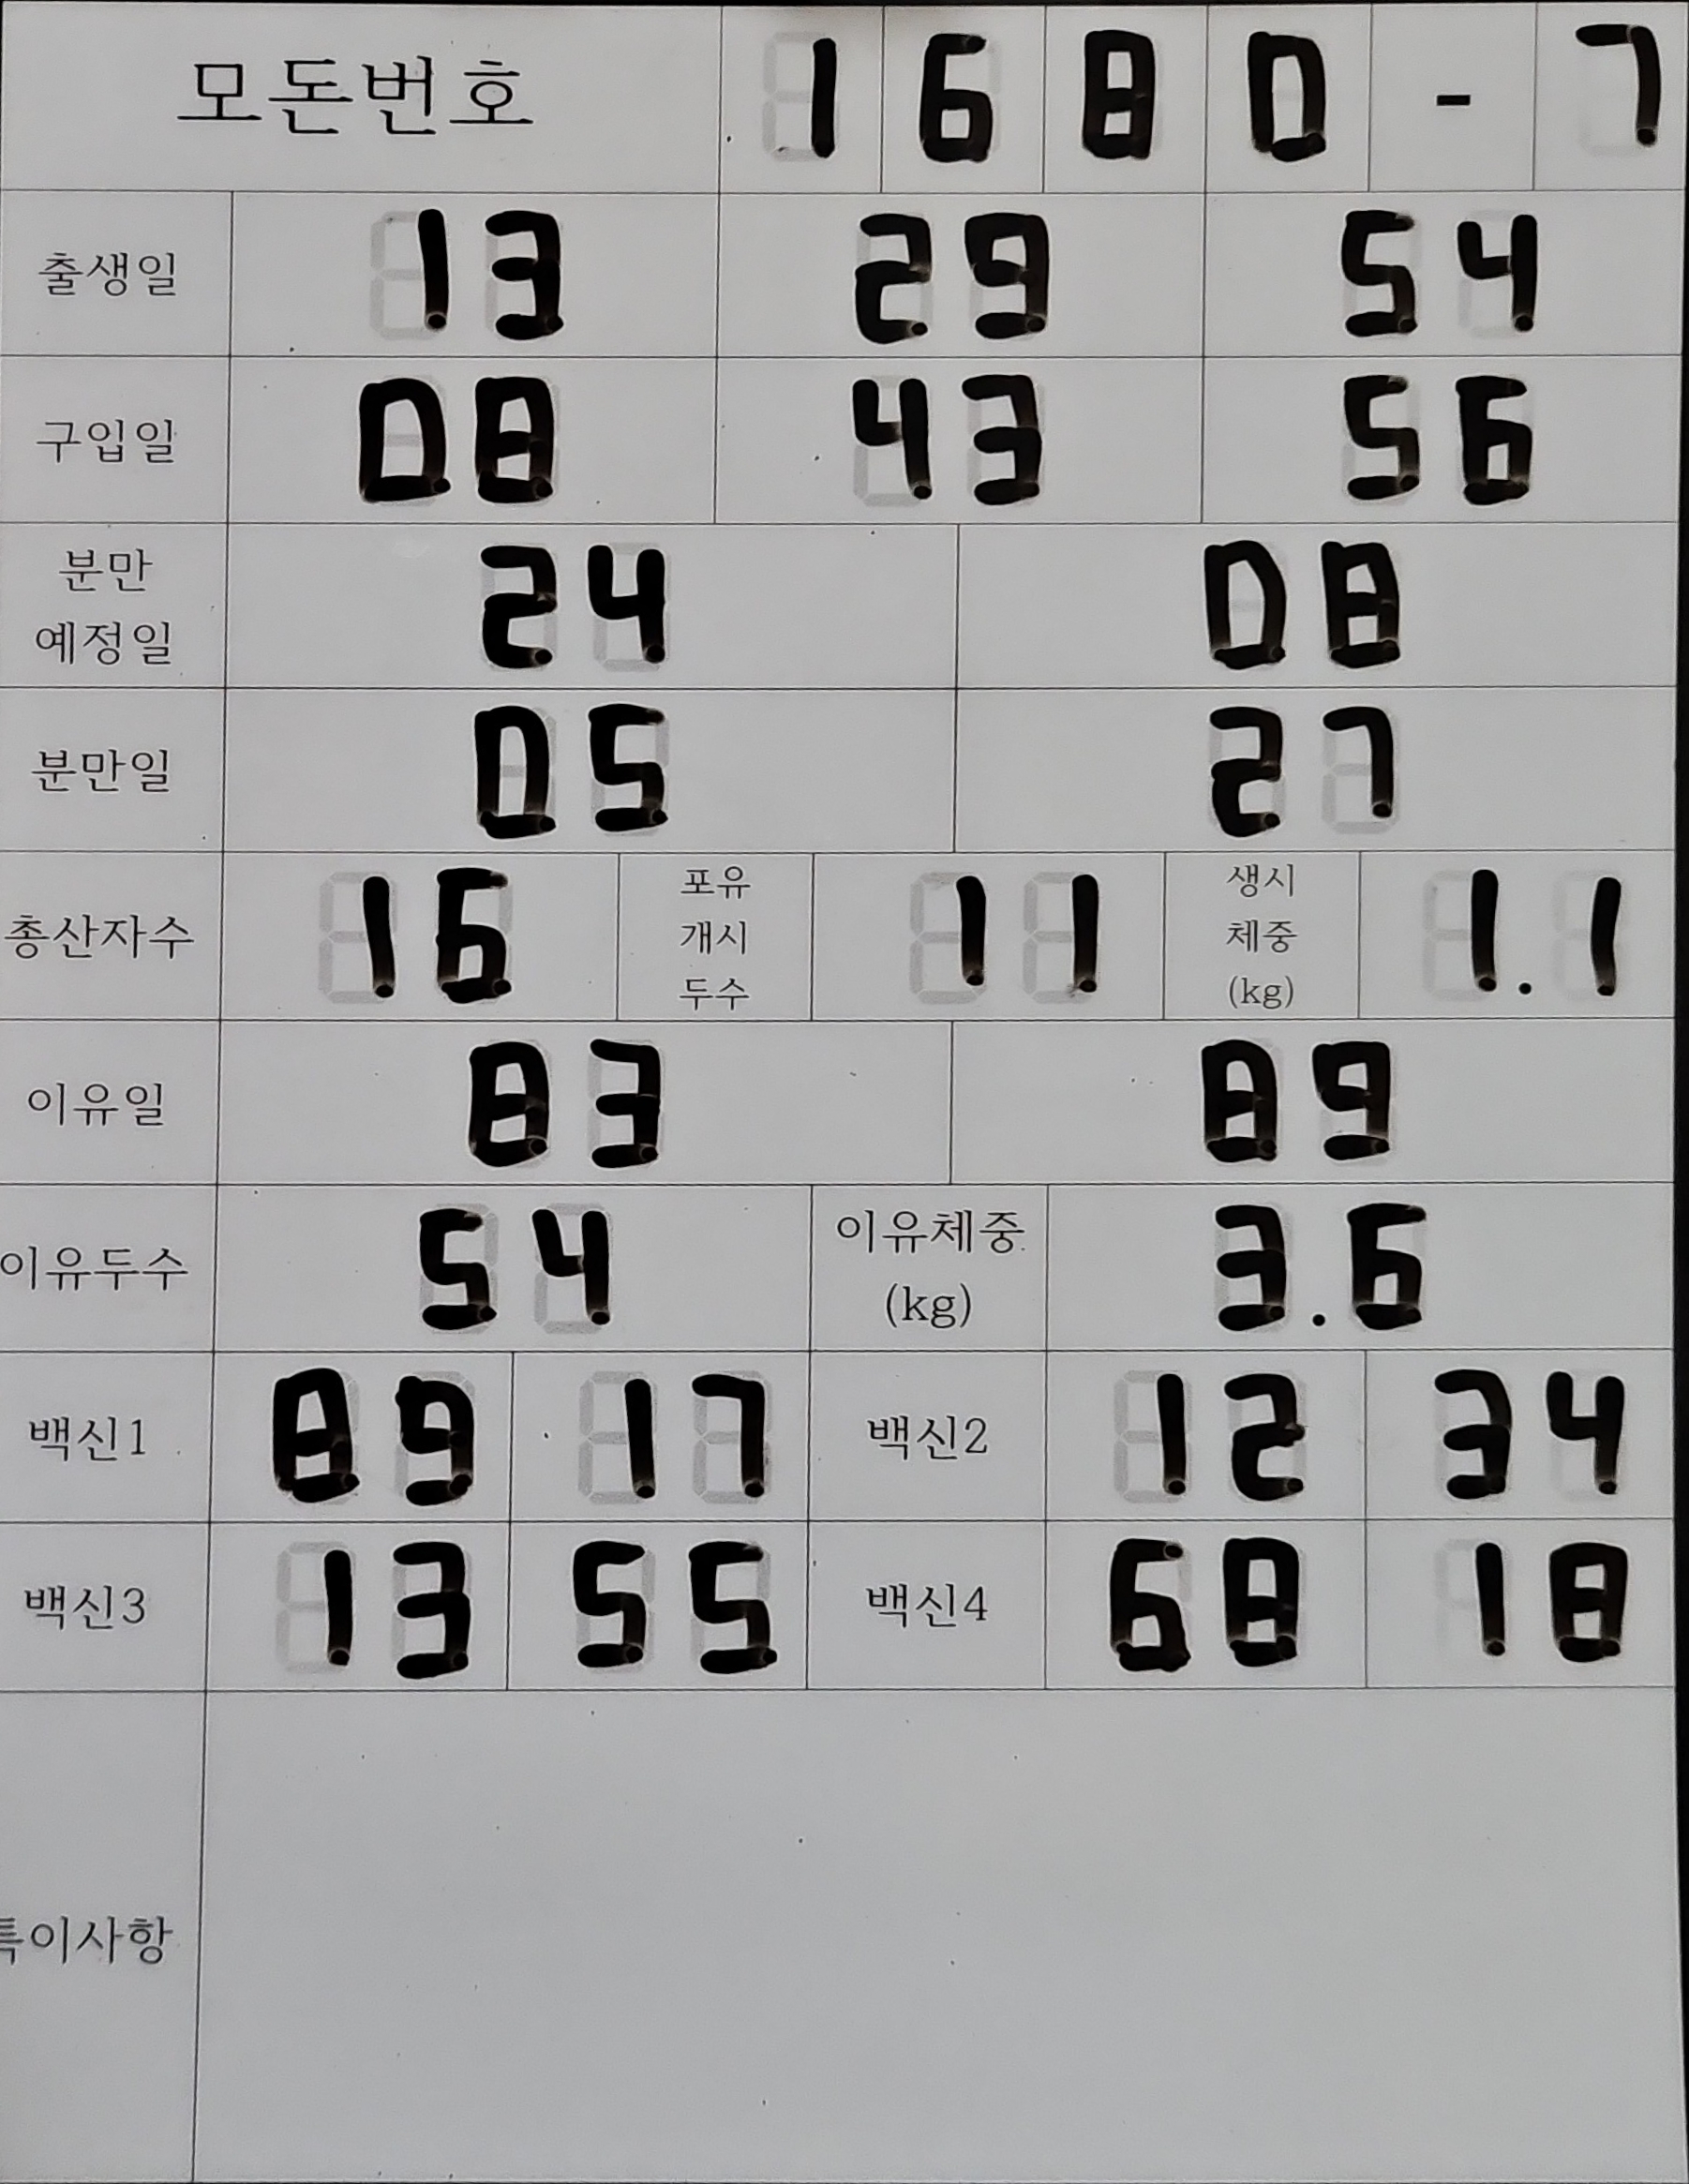 모돈번호 1 6 8 0 - 7
출생일 13 29 54
구입일 08 43 56
분만 예정일 24 08
분만일 05 27
총산자수 16 포유 개시 두수 11 생시 체중 (kg) 1.1
이유일 83 89
이유두수 54 이유체중 (kg) 3.6
백신1 89 17 백신2 12 34
백신3 13 55 백신4 68 18
특이사항